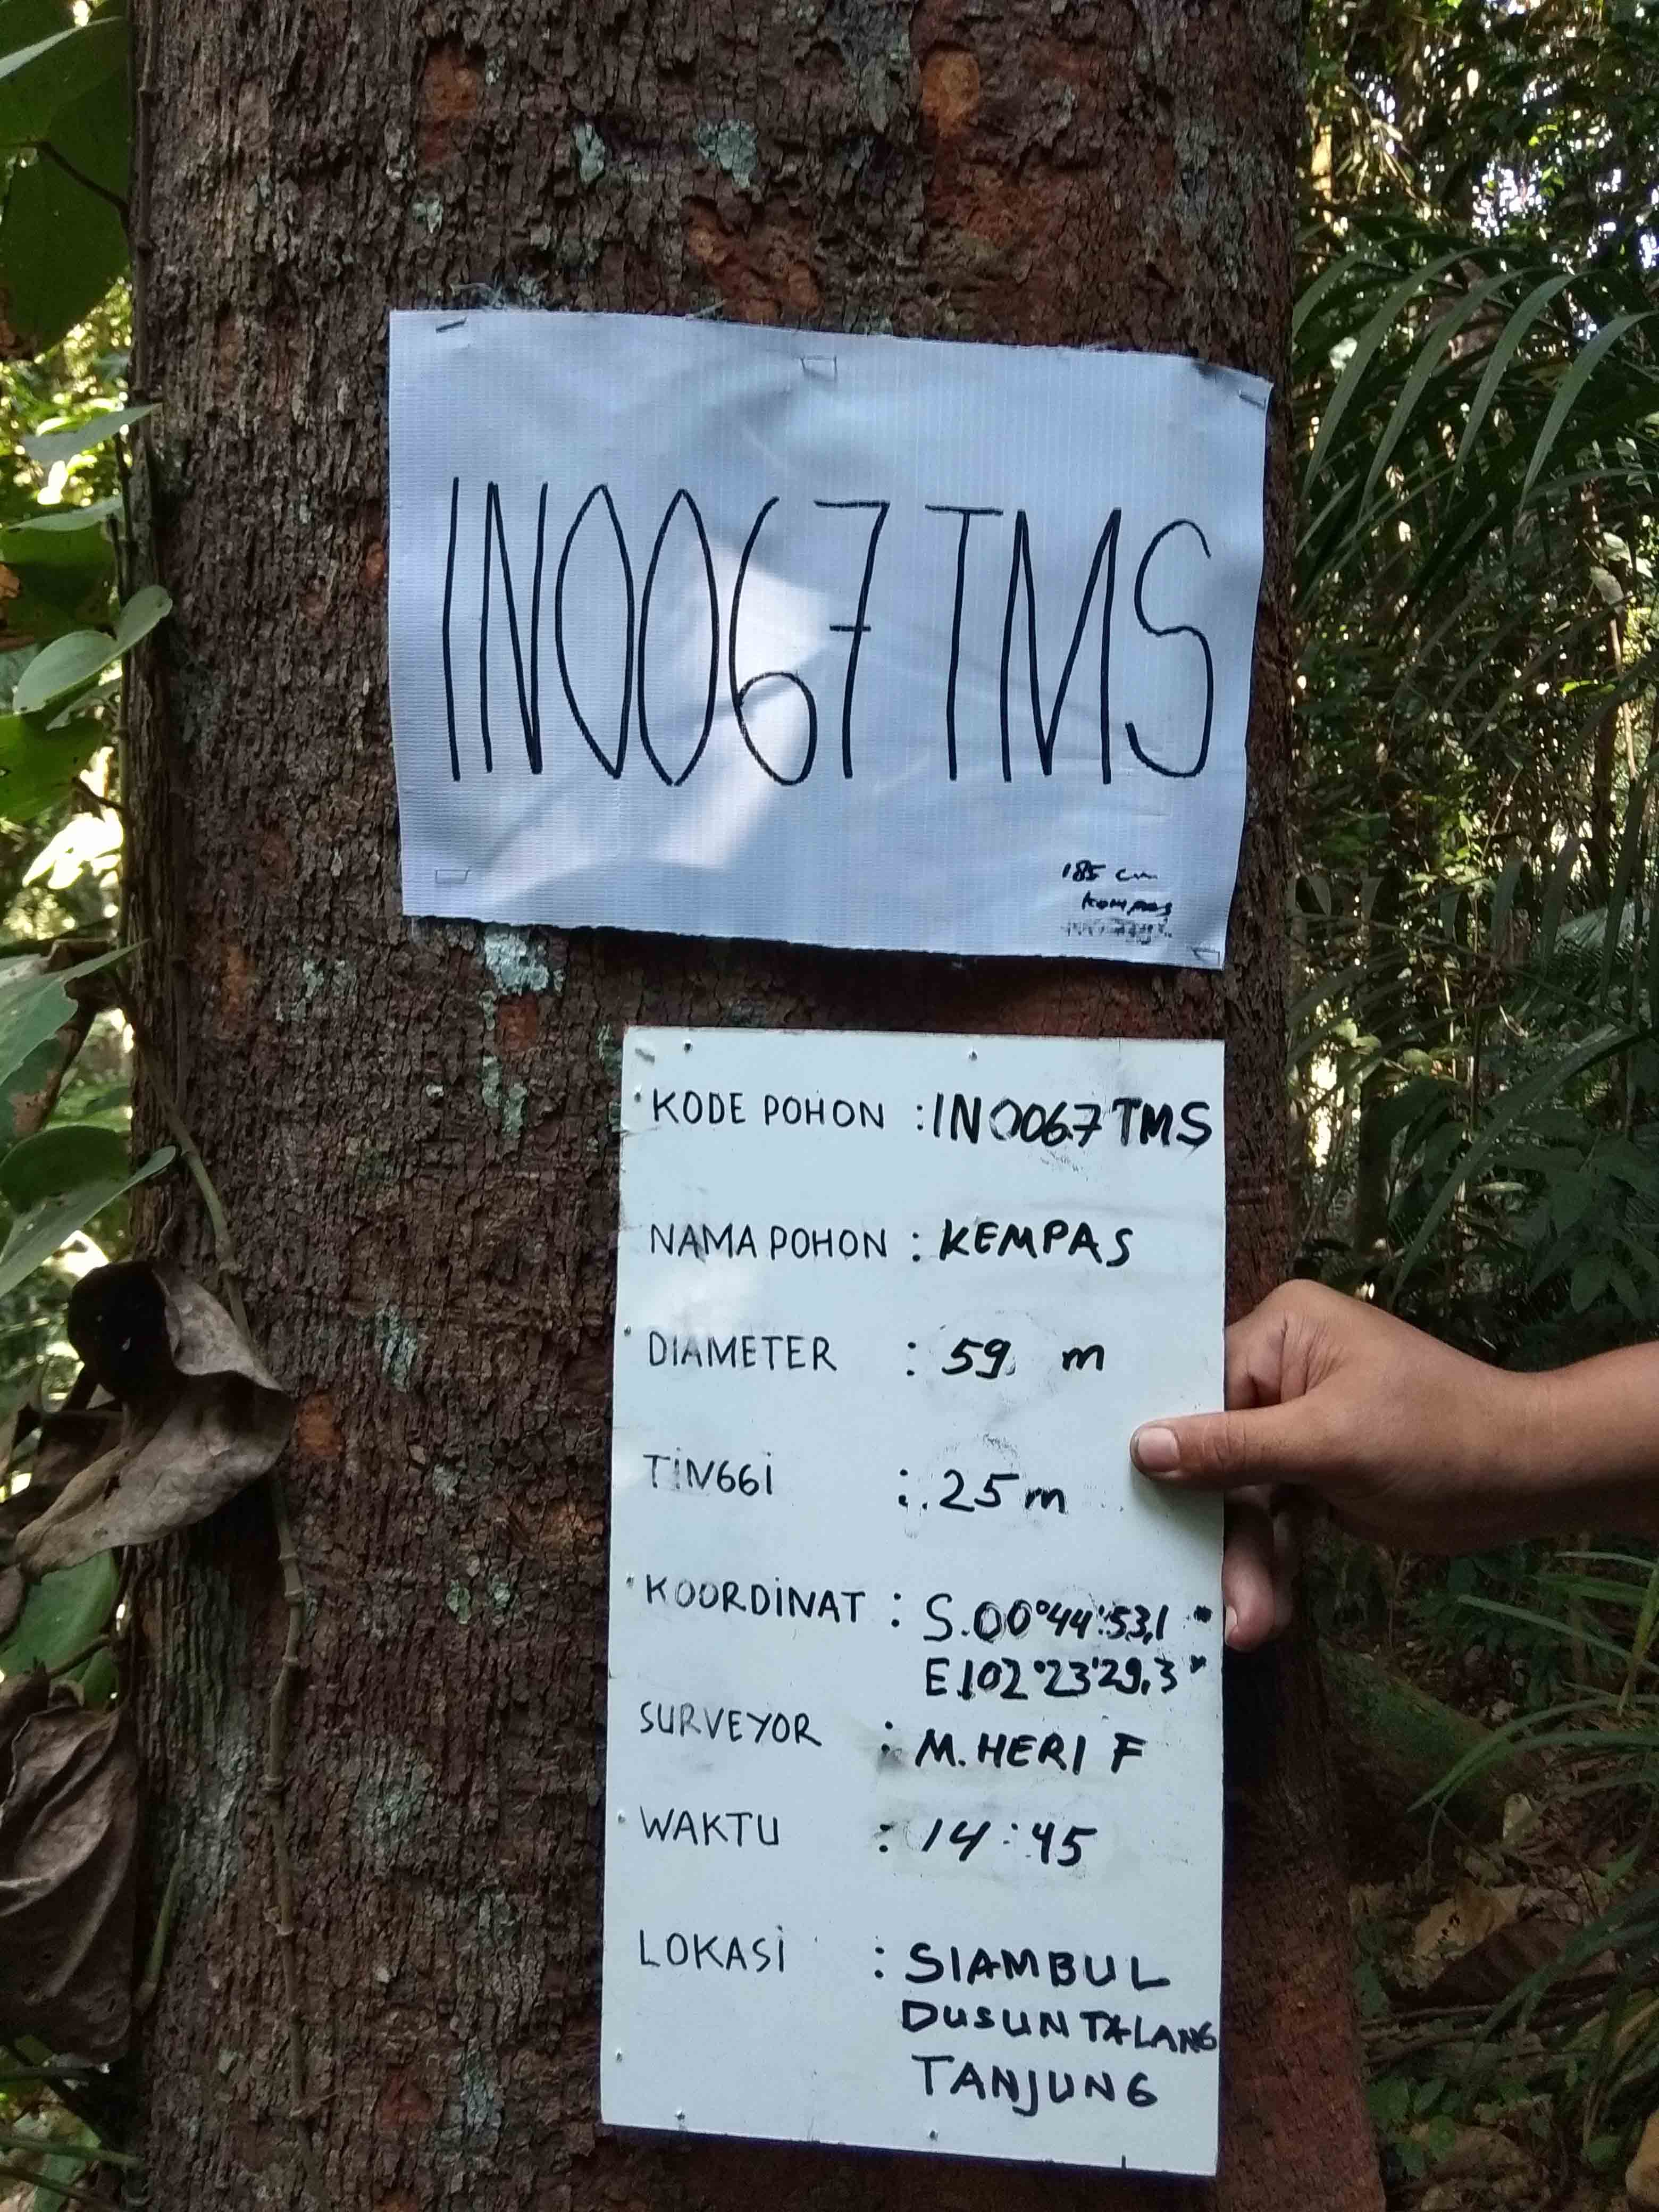 IN0067 TMS
185 cm
kompas
KODE POHON : IN0067 TMS
NAMA POHON : KEMPAS
DIAMETER : 59 m
TINGGI : 25 m
KOORDINAT : S.00°44'53,1"
E102°23'29,3"
SURVEYOR : M. HERI F
WAKTU : 14:45
LOKASI : SIAMBUL
DUSUN TALANG
TANJUNG